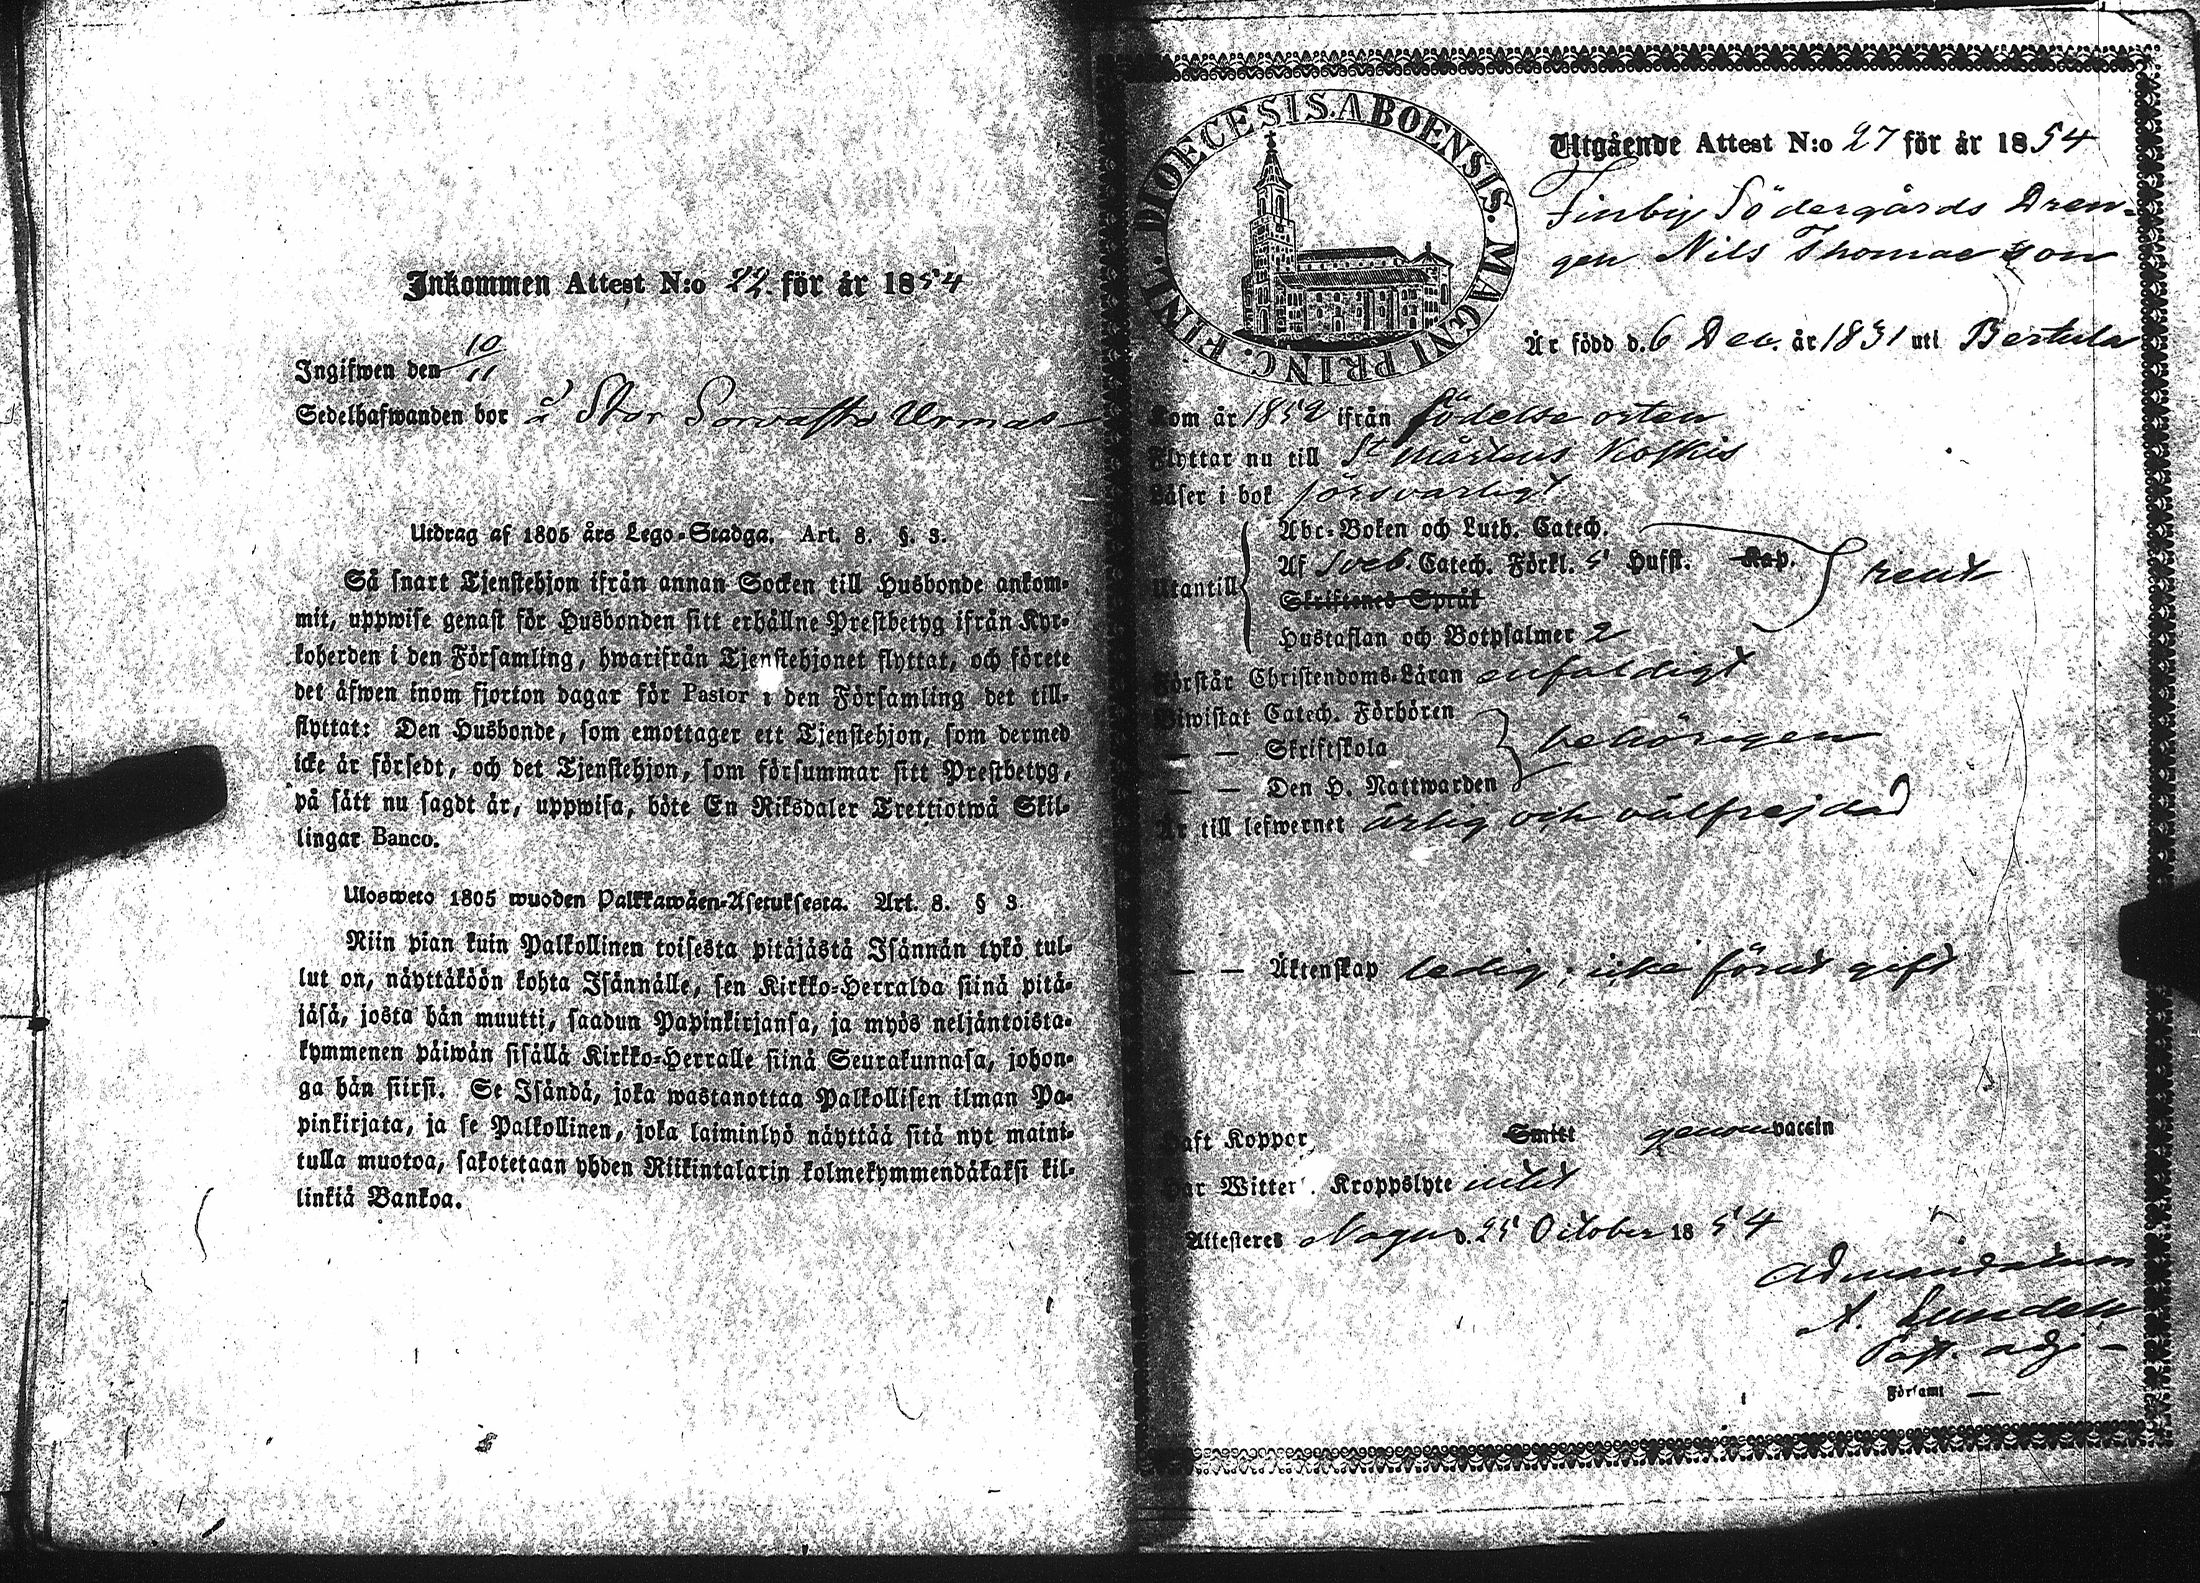 Inkommen Attest N:o 22. för år 1854
Ingifwen den 10/11
Sedelhafwanden bor å Stor Sorvasto Urmas
Utdrag af 1805 års Lego-Stadga. Art. 8. §. 3.
Så snart Tjenstehjon ifrån annan Socken till Husbonde ankom-
mit, uppwise genast för Husbonden sitt erhållne Prestbetyg ifrån Kyr-
koherden i den Församling, hwarifrån Tjenstehjonet flyttat, och förete
det äfwen inom fjorton dagar för Pastor i den Församling det till-
flyttat: Den Husbonde, som emottager ett Tjenstehjon, som dermed
icke är försedt, och det Tjenstehjon, som försummar sitt Prestbetyg,
på sätt nu sagdt är, uppwisa, böte En Riksdaler Trettiotwå Skil-
lingar Banco.
Ulosweto 1805 wuoden Palkkawäen-Asetuksesta. Art. 8. § 3.
Niin pian kuin Palkollinen toisesta pitäjästä Isännän tykö tul-
lut on, näyttäköön kohta Isännälle, sen Kirkko-Herralda siinä pitä-
jäsä, josta hän muutti, saadun Papinkirjansa, ja myös neljäntoista-
kymmenen päiwän sisällä Kirkko-Herralle siinä Seurakunnasa, johon-
ga hän siirsi. Se Isändä, joka wastanottaa Palkollisen ilman Pa-
pinkirjata, ja se Palkollinen, joka laiminlyö näyttää sitä nyt maini-
tulla muotoa, sakotetaan yhden Riikintalarin kolmekymmendäkaksi kil-
linkiä Bankoa.
DIOECESIS. ABOENSIS. MAGNI PRINC. FINL.
Utgående Attest N:o 27 för år 1854
Finby Södergårds Dren-
gen Nils Thomasson
Är född d. 6 Dec. år 1831 uti Bertula
Kom år 1852 ifrån födelse orten
Flyttar nu till St Mårtens Koskis
Läser i bok försvarligt
Utantill
Abc-Boken och Luth. Catech.
Af Sveb. Catech. Förkl. 5 Hufst. Kap.
Skriftenes Språk
Hustaflan och Botpsalmer 2
rent
Förstår Christendoms-Läran enfaldigt
Biwistat Catech. Förhören
— — Skriftskola
— — Den H. Nattwarden
behörigen
Är till lefwernet ärlig och välfrejdad
— — Äktenskap ledig, icke förut gift
Haft Koppor, Smitt genom vaccin
Har Witterl. Kroppslyte intet
Attesteres Nagu d. 25 October 1854
Ad mandatum
A. Lundell
Past. adj.
Församl —